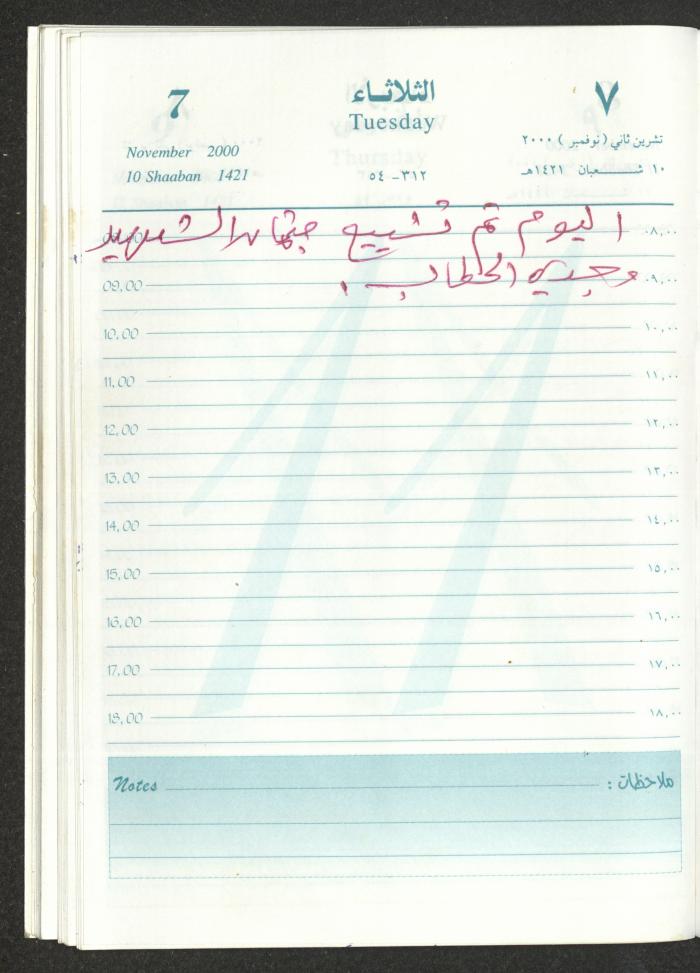 7 الثلاثـاء ٧
Tuesday
November 2000 تشرين ثاني ( نوفمبر ) ٢٠٠٠
10 Shaaban 1421 ٣١٢ - ٥٤ ١٠ شــعبان ١٤٢١هـ
اليوم تم تشييع جثمان الشهيد ٠٨,٠٠
وجدي الحطاب .
09,00 ٠٩,٠٠
10,00 ١٠,٠٠
11,00 ١١,٠٠
12,00 ١٢,٠٠
13,00 ١٣,٠٠
14,00 ١٤,٠٠
15,00 ١٥,٠٠
16,00 ١٦,٠٠
17,00 ١٧,٠٠
18,00 ١٨,٠٠
Notes ملاحظات :